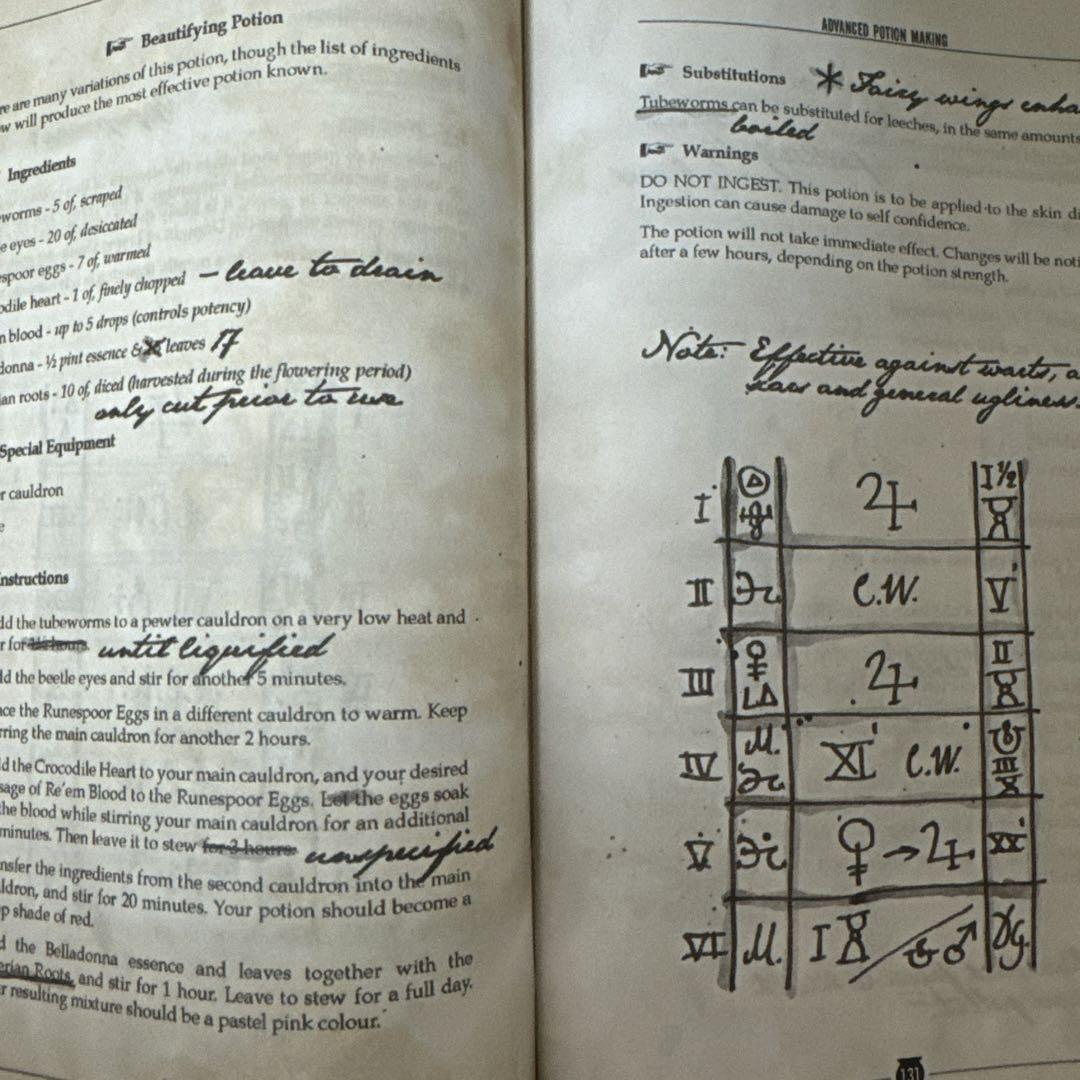 Beautifying Potion
re are many variations of this potion, though the list of ingredients
w will produce the most effective potion known.
Ingredients
worms - 5 of, scraped
e eyes - 20 of, desiccated
espoor eggs - 7 of, warmed
odile heart - 1 of, finely chopped — leave to drain
n blood - up to 5 drops (controls potency)
donna - ½ pint essence & leaves 17
ian roots - 10 of, diced (harvested during the flowering period)
only cut prior to use
Special Equipment
r cauldron
e
nstructions
dd the tubeworms to a pewter cauldron on a very low heat and
r for until liquified
dd the beetle eyes and stir for another 5 minutes.
ace the Runespoor Eggs in a different cauldron to warm. Keep
rring the main cauldron for another 2 hours.
d the Crocodile Heart to your main cauldron, and your desired
sage of Re'em Blood to the Runespoor Eggs. Let the eggs soak
the blood while stirring your main cauldron for an additional
minutes. Then leave it to stew for 3 hours. unspecified
nsfer the ingredients from the second cauldron into the main
ldron, and stir for 20 minutes. Your potion should become a
p shade of red.
d the Belladonna essence and leaves together with the
erian Roots, and stir for 1 hour. Leave to stew for a full day.
r resulting mixture should be a pastel pink colour.
ADVANCED POTION MAKING
Substitutions * Fairy wings enha
Tubeworms can be substituted for leeches, in the same amounts
boiled
Warnings
DO NOT INGEST. This potion is to be applied to the skin di
Ingestion can cause damage to self confidence.
The potion will not take immediate effect. Changes will be noti
after a few hours, depending on the potion strength.
Note: Effective against warts, a
scars and general ugliness.
I ♃ I ½
II C.W. V
III ♀ ♃ II
IV M. XI C.W. III
V ♀ → ♃ XX
VI M. I ♂
131